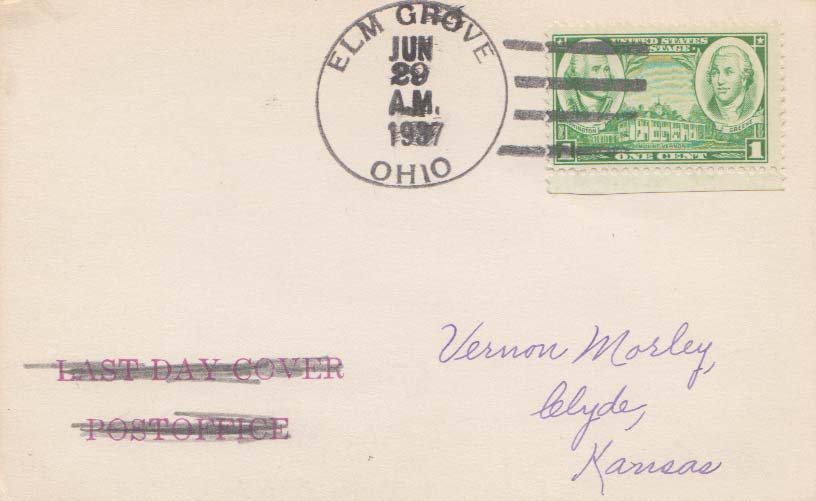 ELM GROVE
JUN
29
A.M.
1937
OHIO
UNITED STATES
POSTAGE
WASHINGTON
GREENE
MOUNT VERNON
1 ONE CENT 1
LAST DAY COVER
POSTOFFICE
Vernon Morley,
Clyde,
Kansas